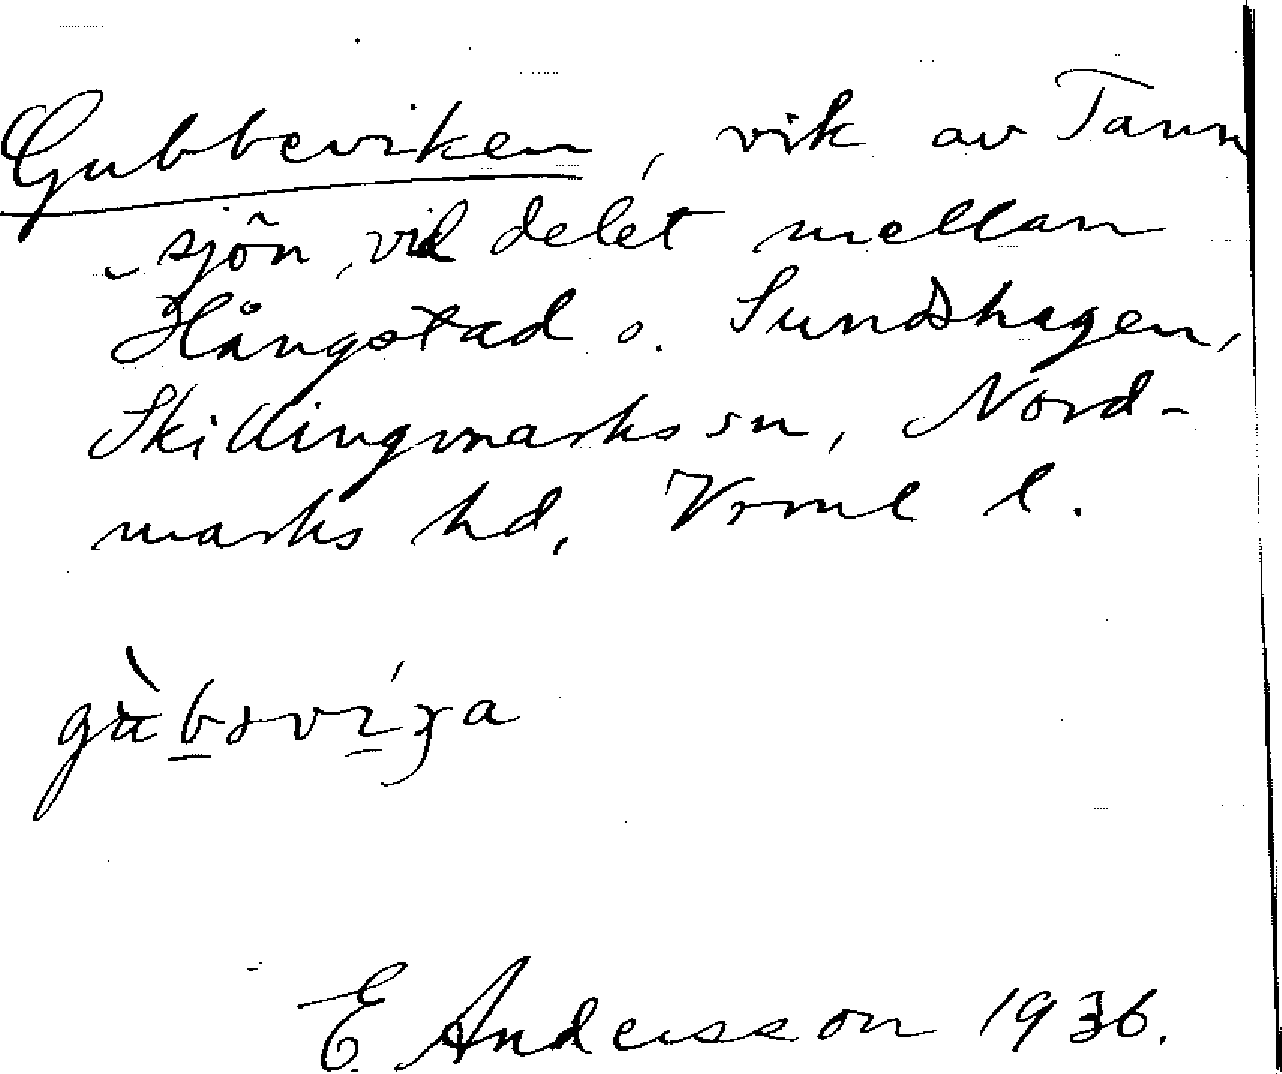 Gubbeviken, vik av Tann
sjön, vid delet mellan
Hångstad o. Sundshagen,
Skillingmarks sn, Nord-
marks hd, Vrml l.
E. Andersson 1936.